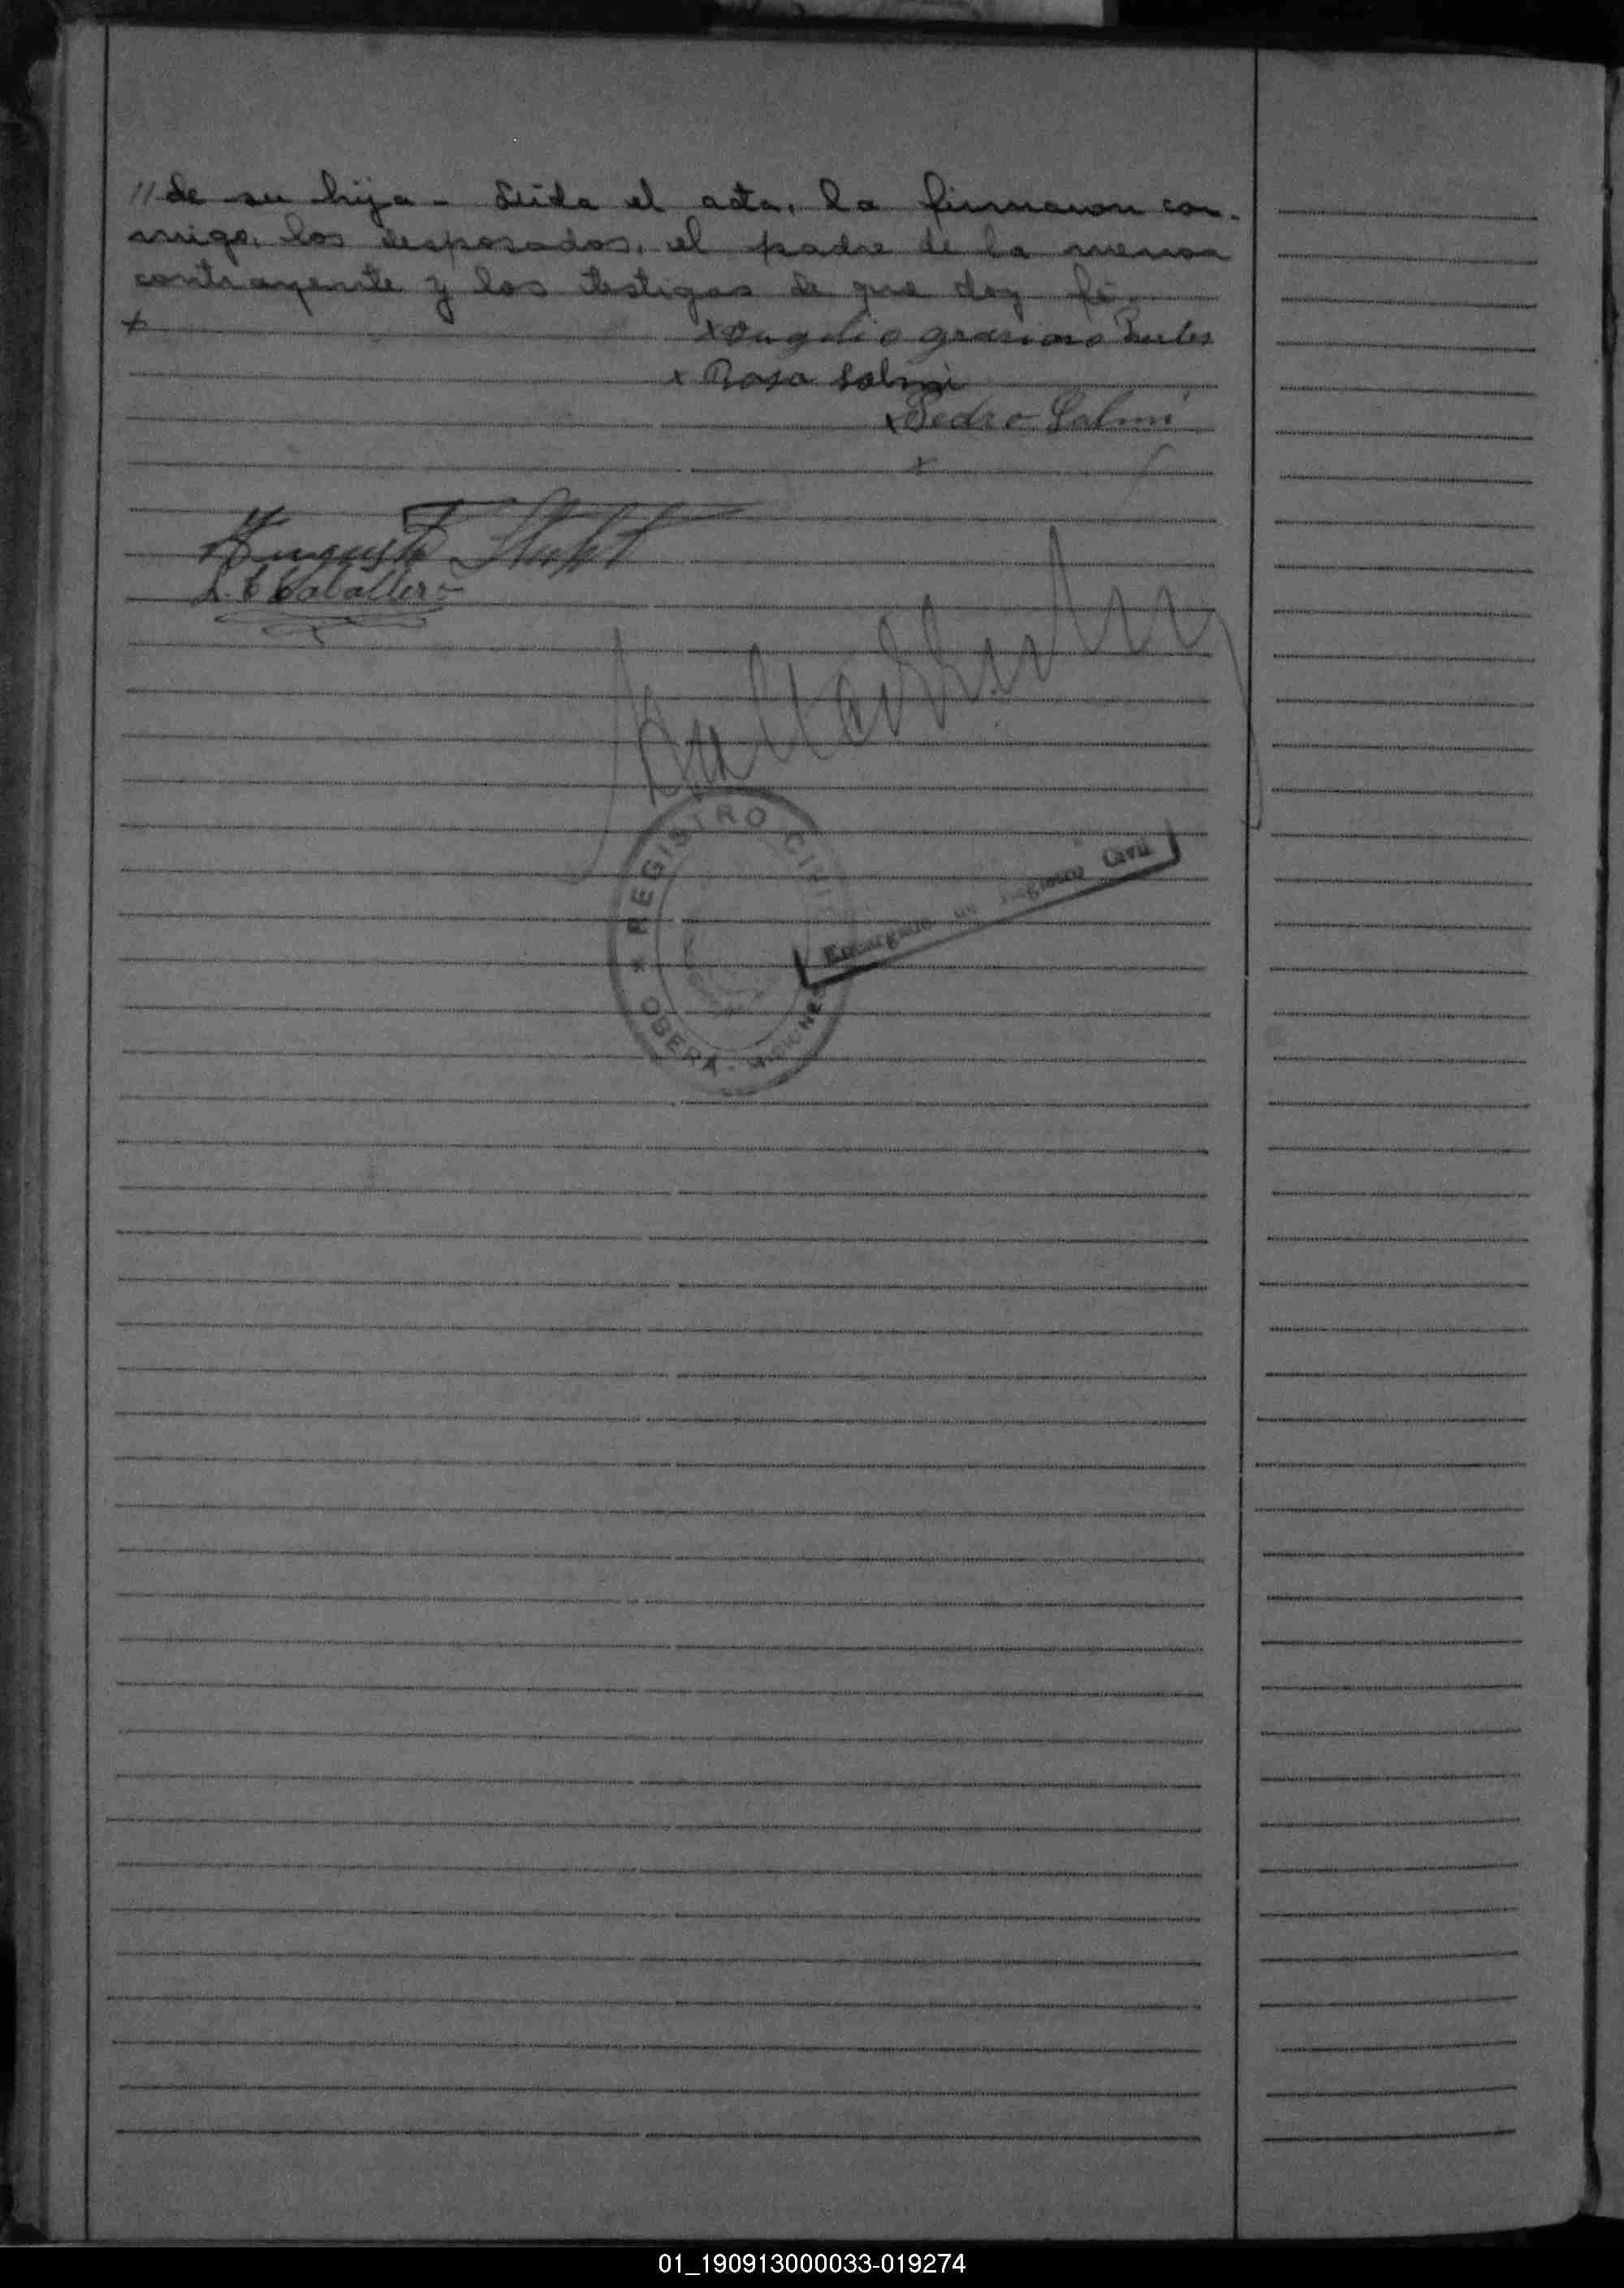 // de su hija - Leida el acta, la firmaron con-
migo, los desposados, el padre de la menor
contrayente y los testigos de que doy fé.
x
x grasioso
x Rosa Salmi
x Pedro Salmi
x
Augusto
L. C Caballero
REGISTRO CIVIL
OBERA - MISIONES
Encargado de Registro Civil
01_190913000033-019274